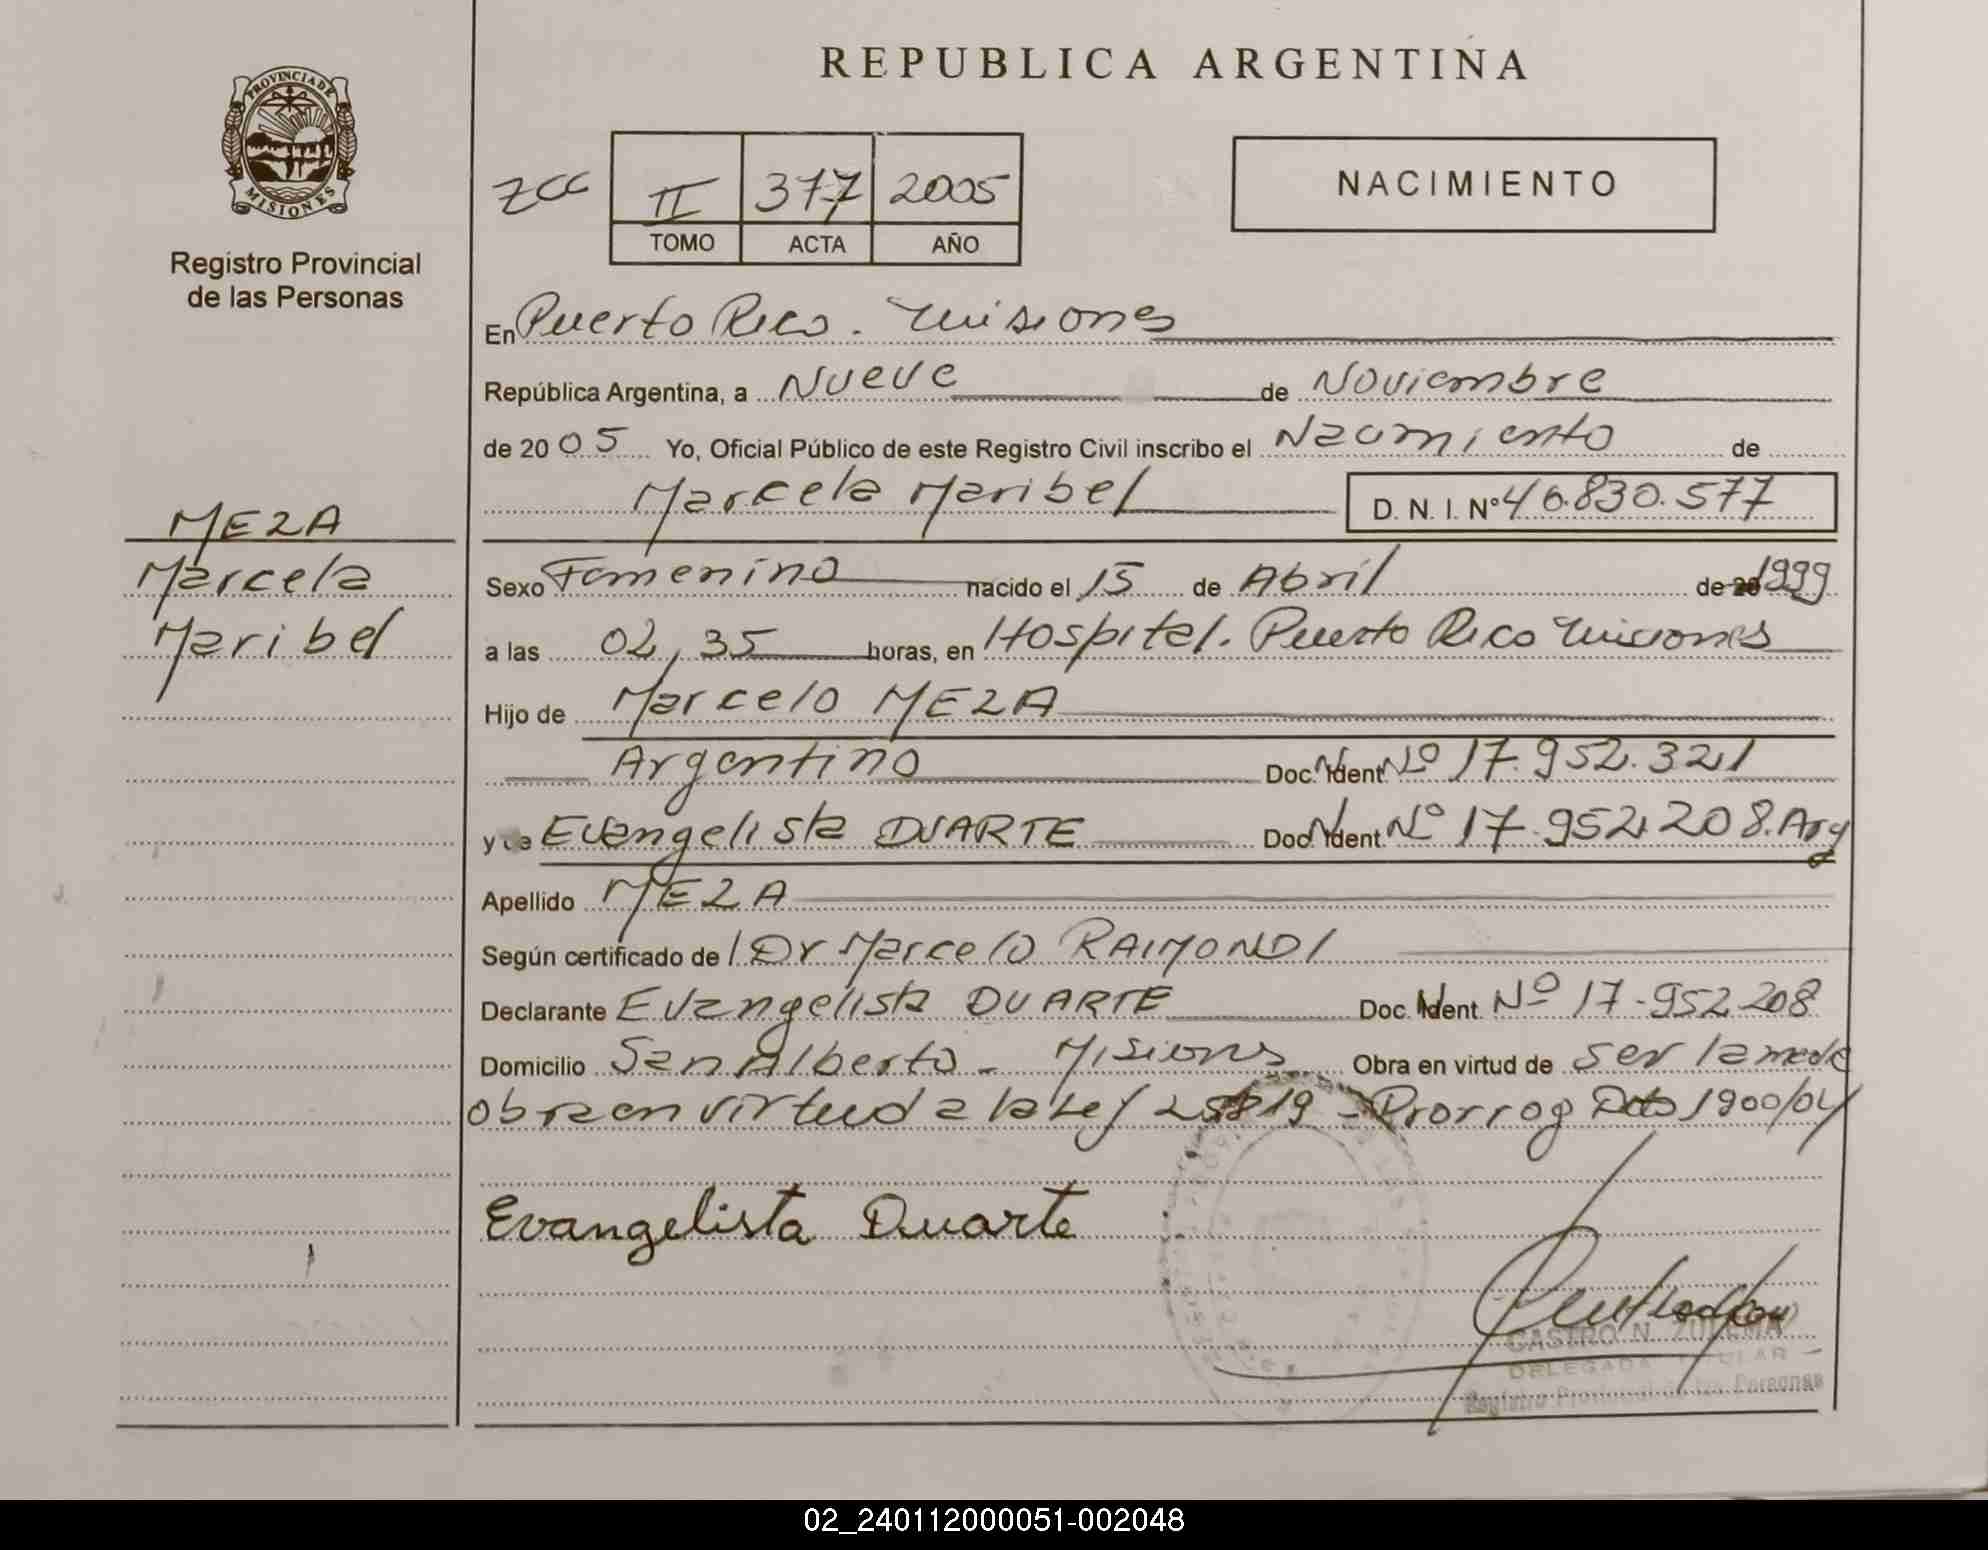 REPUBLICA ARGENTINA
PROVINCIA DE
MISIONES
Registro Provincial
de las Personas
zcc II 377 2005
TOMO ACTA AÑO
NACIMIENTO
En Puerto Rico. Misiones
República Argentina, a Nueve de Noviembre
de 20 05 Yo, Oficial Público de este Registro Civil inscribo el Nacimiento de
Marcela Maribel D. N. I. Nº 46.830.577
MEZA
Marcela
Maribel
Sexo Femenino nacido el 15 de Abril de 1999
a las 02,35 horas, en Hospital. Puerto Rico Misiones
Hijo de Marcelo MEZA
Argentino Doc. Ident Nº 17.952.321
y de Evangelista DUARTE Doc. Ident Nº 17.952.208. Arg
Apellido MEZA
Según certificado de l Dr Marcelo RAIMONDI
Declarante Evangelista DUARTE Doc. Ident. Nº 17-952.208
Domicilio San Alberto - Misiones Obra en virtud de ser la madre
obra en virtud a la Ley 25819 - Prorrog Dto 1900/04
Evangelista Duarte
CASTRO N. ZULEMA
DELEGADA TITULAR
Registro Provincial de las Personas
02_240112000051-002048